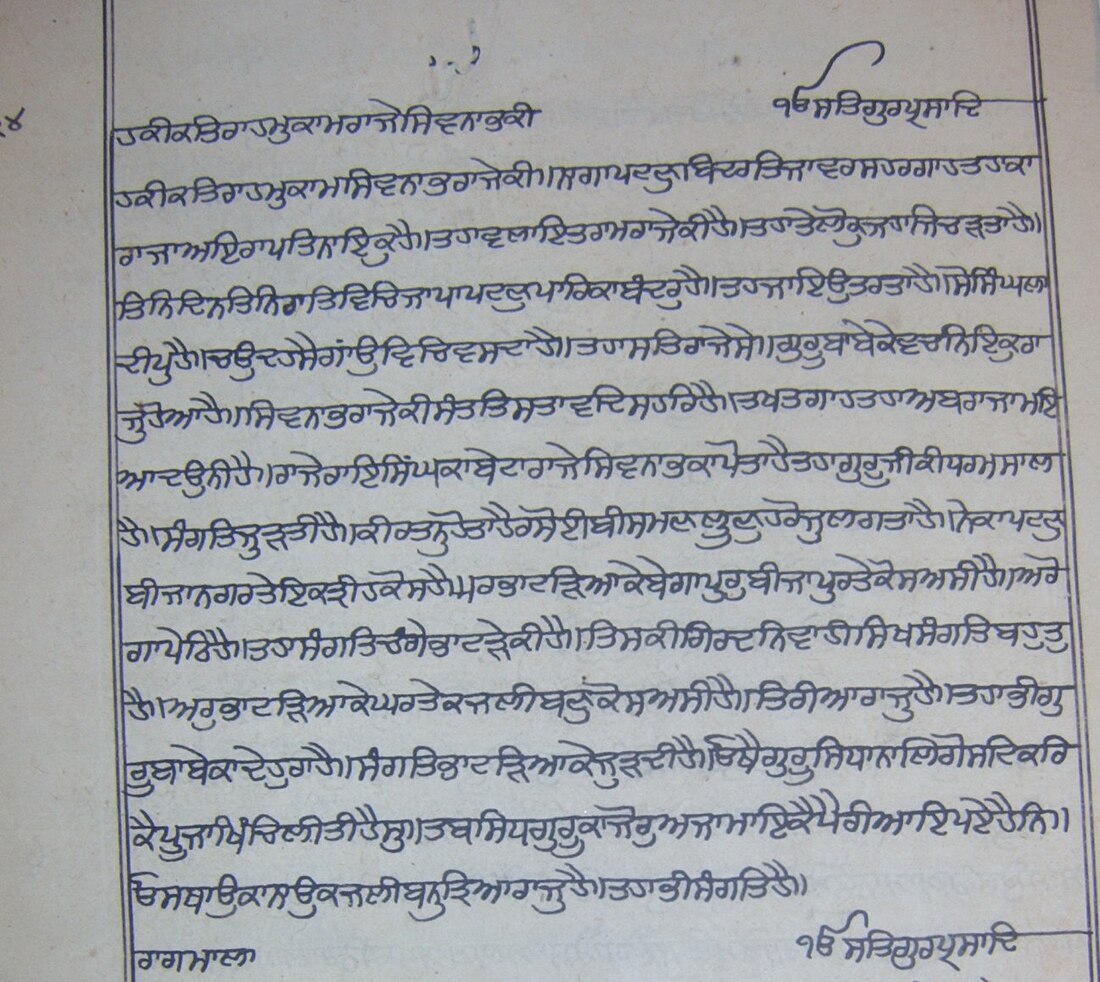 ੪
ਹਕੀਕਤਿਰਾਹਮੁਕਾਮਰਾਜੇਸਿਵਨਾਭਕੀ ੧ਓਸਤਿਗੁਰਪ੍ਰਸਾਦਿ
ਹਕੀਕਤਿਰਾਹਮੁਕਾਮਸਿਵਨਾਭਰਾਜੇਕੀ॥ਨਗਾਪਟਣੁਬਿਦਰਤਿਜਾਵਰਸਹਰਗਾਹਤਹਕਾ
ਰਾਜਾਅਇਰਾਪਤਿਨਾਇਕੁਹੈ॥ਤਹਾਵਲਾਇਤਰਾਮਰਾਜੇਕੀਹੈ॥ਤਹਾਤੇਲੋਕੁਜਹਾਜਿਚੜਤਾਹੈ॥
ਤਿਨਿਦਿਨਤਿਨਿਰਾਤਿਵਿਚਿਜਾਪਾਪਟਣੁਪਾਰਿਕਾਬੰਦਰੁਹੈ॥ਤਹਜਾਇਉਤਰਤਾਹੈ॥ਸੋਸਿੰਘਲਾ
ਦੀਪੁਹੈ॥ਚਉਦਹਸੈਗਾਂਉਵਿਚਿਵਸਦਾਹੈ॥ਤਹਾਸਤਿਰਾਜੇਸੇ॥ਗੁਰੁਬਾਬੇਕੇਵਚਨਿਇਕੁਰਾ
ਜੁਹੋਆਹੈ॥ਸਿਵਨਾਭਰਾਜੇਕੀਸੰਤਤਿਸਤਾਵਦਿਸਹਰਿਹੈ॥ਤਖਤਗਾਹਤਹਾਅਬਰਾਜਾਮਇ
ਆਦਉਨੀਹੈ॥ਰਾਜੇਰਾਇਸਿੰਘਕਾਬੇਟਾਰਾਜੇਸਿਵਨਾਭਕਾਪੋਤਾਹੈਤਹਾਗੁਰੁਜੀਕੀਧਰਮਸਾਲ
ਹੈ॥ਸੰਗਤਿਜੁੜਤੀਹੈ॥ਕੀਰਤਨੁਹੋਤਾਹੈਰਸੋਈਬੀਸਮਣਲੂਣੁਹਰੋਜੁਲਗਤਾਹੈ॥ਨੇਕਾਪਟਣੁ
ਬੀਜਾਨਗਰਤੇਇਕਤੀਹਕੋਸਹੈ॥ਘਰਭਾਟੜਿਆਕੇਬੇਗਾਪੁਰੁਬੀਜਾਪੁਰਤੇਕੋਸਅਸੀਹੈ॥ਅਰੋ
ਗਾਪੇਰਿਹੈ॥ਤਹਾਸੰਗਤਿਚੰਗੇਭਾਟੜੇਕੀਹੈ॥ਤਿਸਕੀਗਿਰਦਨਿਵਾਹੀਸਿਖਸੰਗਤਿਬਹੁਤੁ
ਹੈ॥ਅਰੁਭਾਟੜਿਆਕੇਘਰਤੇਕਜਲੀਬਣੁਕੋਸਅਸੀਹੈ॥ਤਿਰੀਆਰਾਜੁਹੈ॥ਤਹਾਭੀਗੁ
ਰੁਬਾਬੇਕਾਦੇਹੁਰਾਹੈ॥ਸੰਗਤਿਭਾਟੜਿਆਕੇਜੁੜਦੀਹੈ॥ਓਥੈਗੁਰੁਸਿਧਾਨਾਲਿਗੋਸਟਿਕਰਿ
ਕੈਪੂਜਾਖਿੰਚਿਲੀਤੀਹੈਸੁ॥ਤਬਸਿਧਗੁਰੁਕਾਜੋਰੁਅਜਮਾਇਕੈਪੈਰੀਆਇਪਏਹੈਨਿ॥
ਓਸਥਾਉਕਾਨਾਉਕਜਲੀਬਨੁਤ੍ਰਿਆਰਾਜੁਹੈ॥ਤਹਾਭੀਸੰਗਤਿਹੈ॥
ਰਾਗਮਾਲਾ ੧ਓਸਤਿਗੁਰਪ੍ਰਸਾਦਿ